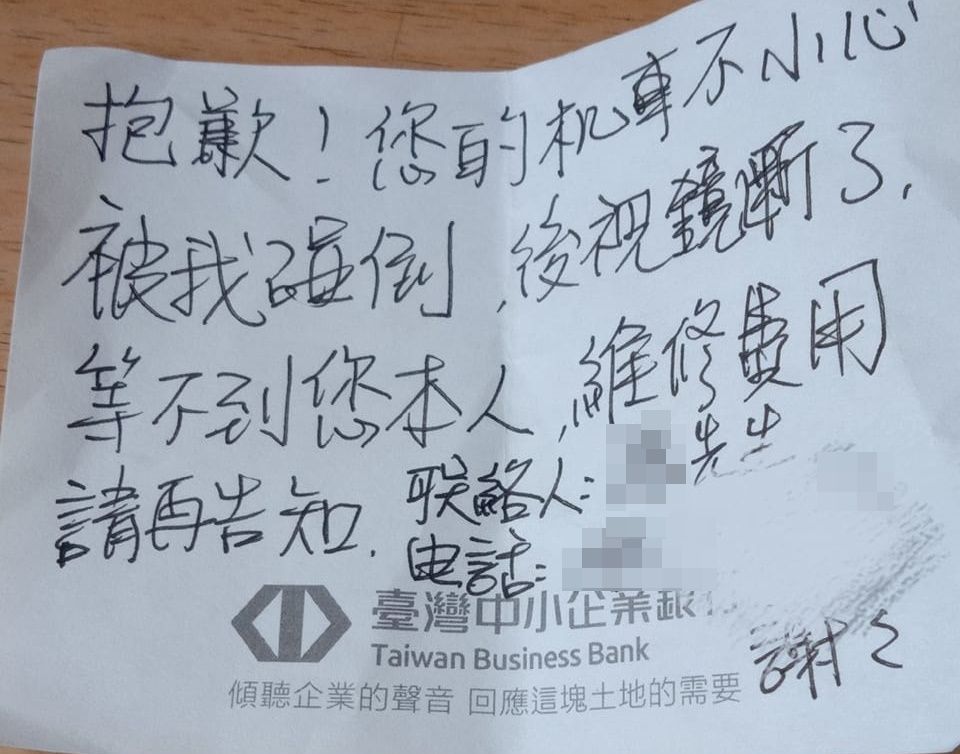 抱歉！您的机車不小心
被我碰倒，後視鏡斷了，
等不到您本人，維修費用
請再告知．
联絡人： 先生
电話：
臺灣中小企業銀
Taiwan Business Bank
傾聽企業的聲音 回應這塊土地的需要
謝々